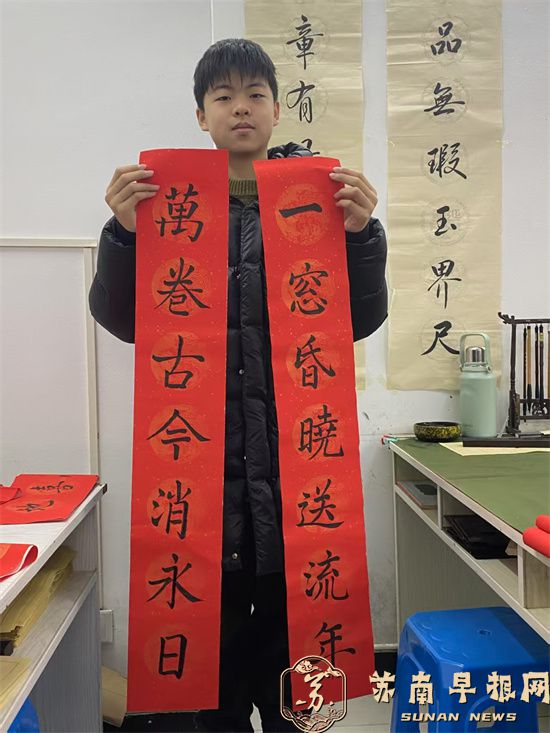 萬卷古今消永日
一窓昏曉送流年
章有
品無瑕玉界尺
苏
苏南早报网
SUNAN NEWS